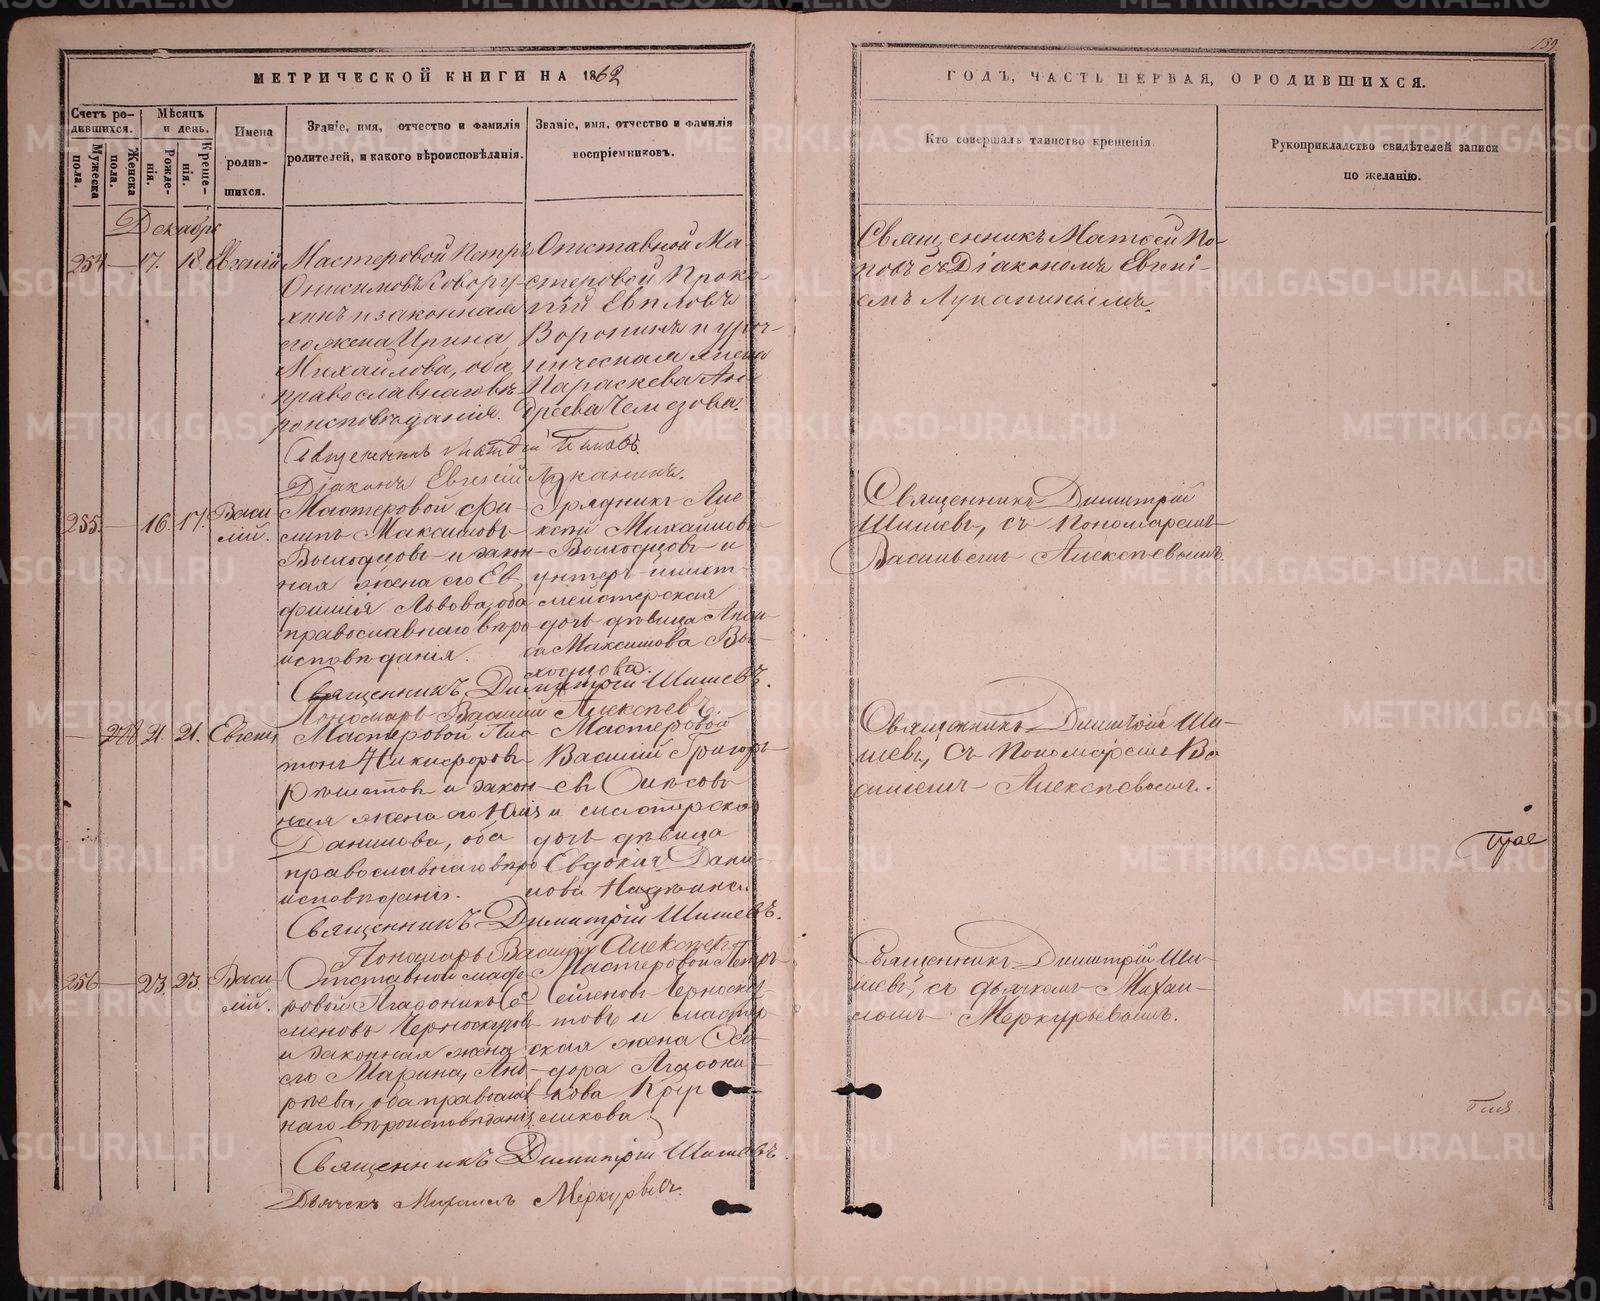 189.
МЕТРИЧЕСКОЙ КНИГИ НА 1862
ГОДЪ, ЧАСТЬ ПЕРВАЯ, О РОДИВШИХСЯ.
Счетъ родившихся.
Мужеска пола.
Женска пола.
Мѣсяцъ и день.
Рожденія.
Крещенія.
Имена родившихся.
Званіе, имя, отчество и фамилія
родителей, и какого вѣроисповѣданія.
Званіе, имя, отчество и фамилія
воспріемниковъ.
Кто совершалъ таинство крещенія.
Рукоприкладство свидѣтелей записи
по желанію.
Декабрь
254 — 17. 18. Евгеній
Мастеровой Петръ
Онисимовъ Говору-
хинъ и законная
его жена Ирина
Михайлова, оба
православнаго вѣ-
роисповѣданія.
Отставной Ма-
стеровой Проко-
пій Евпловъ
Воронинъ и уроч-
ническая жена
Параскева Ан-
дреева Чемезова.
Священникъ Матѳей Поповъ.
Діаконъ Евгеній Луканинъ.
Священникъ Матѳей По-
повъ съ Діакономъ Евгені-
емъ Луканинымъ.
255. — 16. 17. Васи-
лій.
Мастеровой Фи-
липъ Максимовъ
Выходцовъ и закон-
ная жена его Ев-
фимія Львова, оба
православнаго вѣро-
исповѣданія.
Урядникъ Але-
ксѣй Михайловъ
Выходцовъ и
унтеръ-шихт-
мейстерская
дочь дѣвица
Максимова Вы-
ходцова.
Священникъ Димитрій Шишевъ.
Пономарь Василій Алексѣевъ.
Священникъ Димитрій
Шишевъ, съ Пономаремъ
Васильемъ Алексѣевымъ.
— 21. 21. Евгенія
Мастеровой
Никифоровъ
Рѣшетовъ и закон-
ная жена его Юлія
Данилова, оба
православнаго вѣро-
исповѣданія.
Мастеровой
Василій Григорь-
евъ
и мастерская
дочь дѣвица
Евдокія Дани-
лова
Священникъ Димитрій Шишевъ.
Пономарь Василій Алексѣевъ.
Священникъ Димитрій Ши-
шевъ, съ Пономаремъ Ва-
сильемъ Алексѣевымъ.
256 — 23. 23. Васи-
лій.
Отставной масте-
ровой Агафоникъ Се-
меновъ Черноскутовъ
и законная жена
его Марина, Анд-
рѣева, оба православ-
наго вѣроисповѣданія.
Мастеровой Петръ
Семеновъ Черноску-
товъ и мастер-
ская жена Ѳео-
дора Агафони-
кова
Священникъ Димитрій Шишевъ.
Дьячекъ Михаилъ Меркурьевъ.
Священникъ Димитрій Ши-
шевъ, съ дьячкомъ Михаи-
ломъ Меркурьевымъ.
METRIKI.GASO-URAL.RU